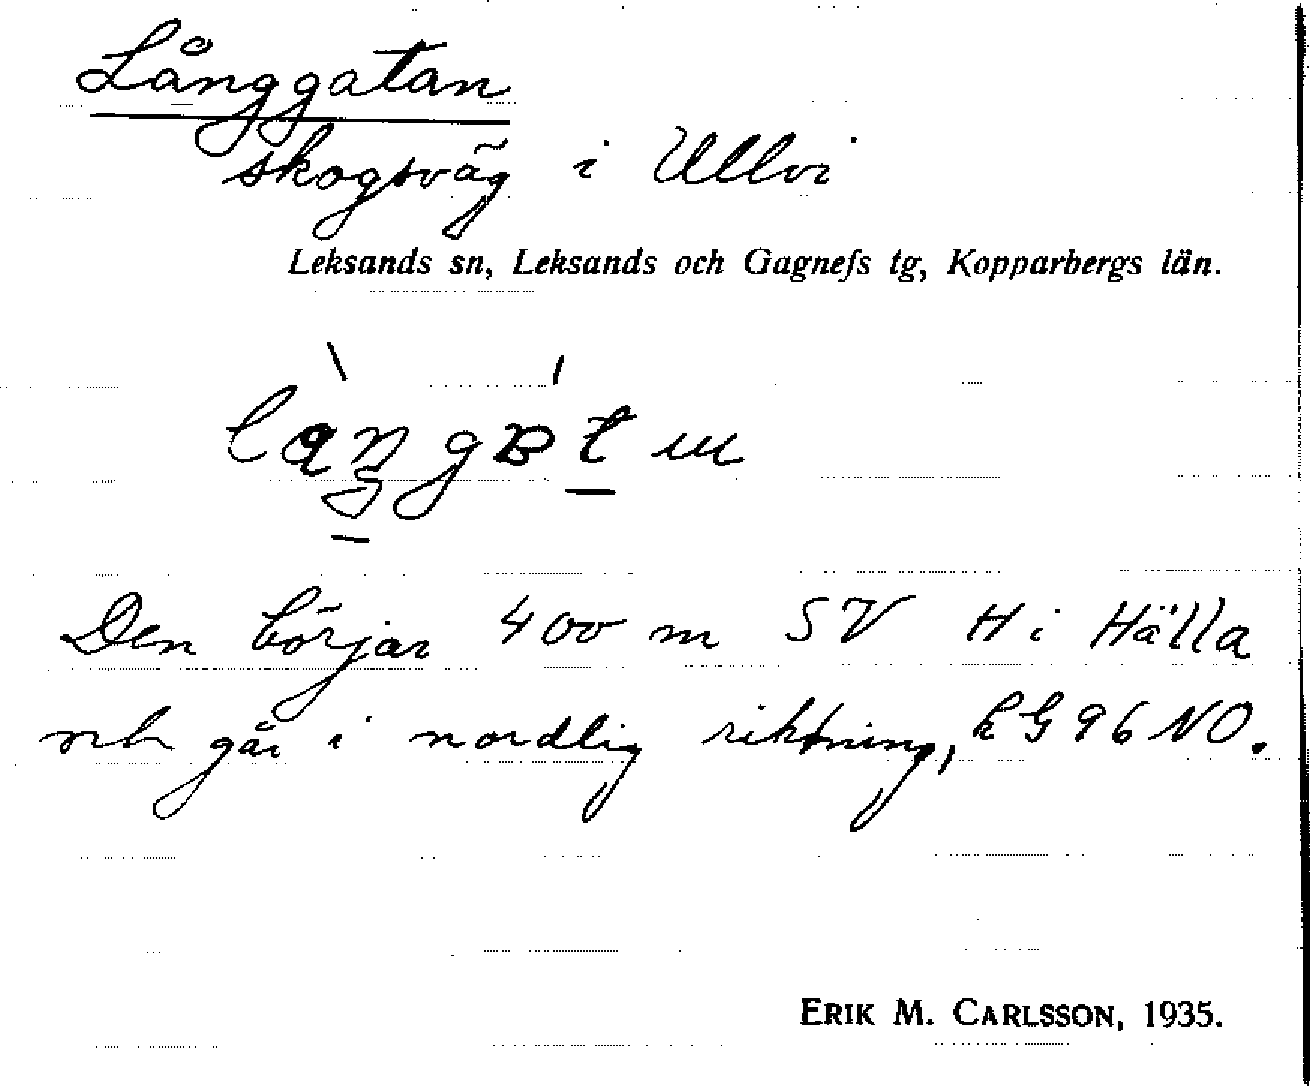 Långgatan
skogsväg i Ullvi
Leksands sn, Leksands och Gagnefs tg, Kopparbergs län.
Den börjar 400 m SV H i Hälla
och går i nordlig riktning, kG 96 NO.
ERIK M. CARLSSON, 1935.